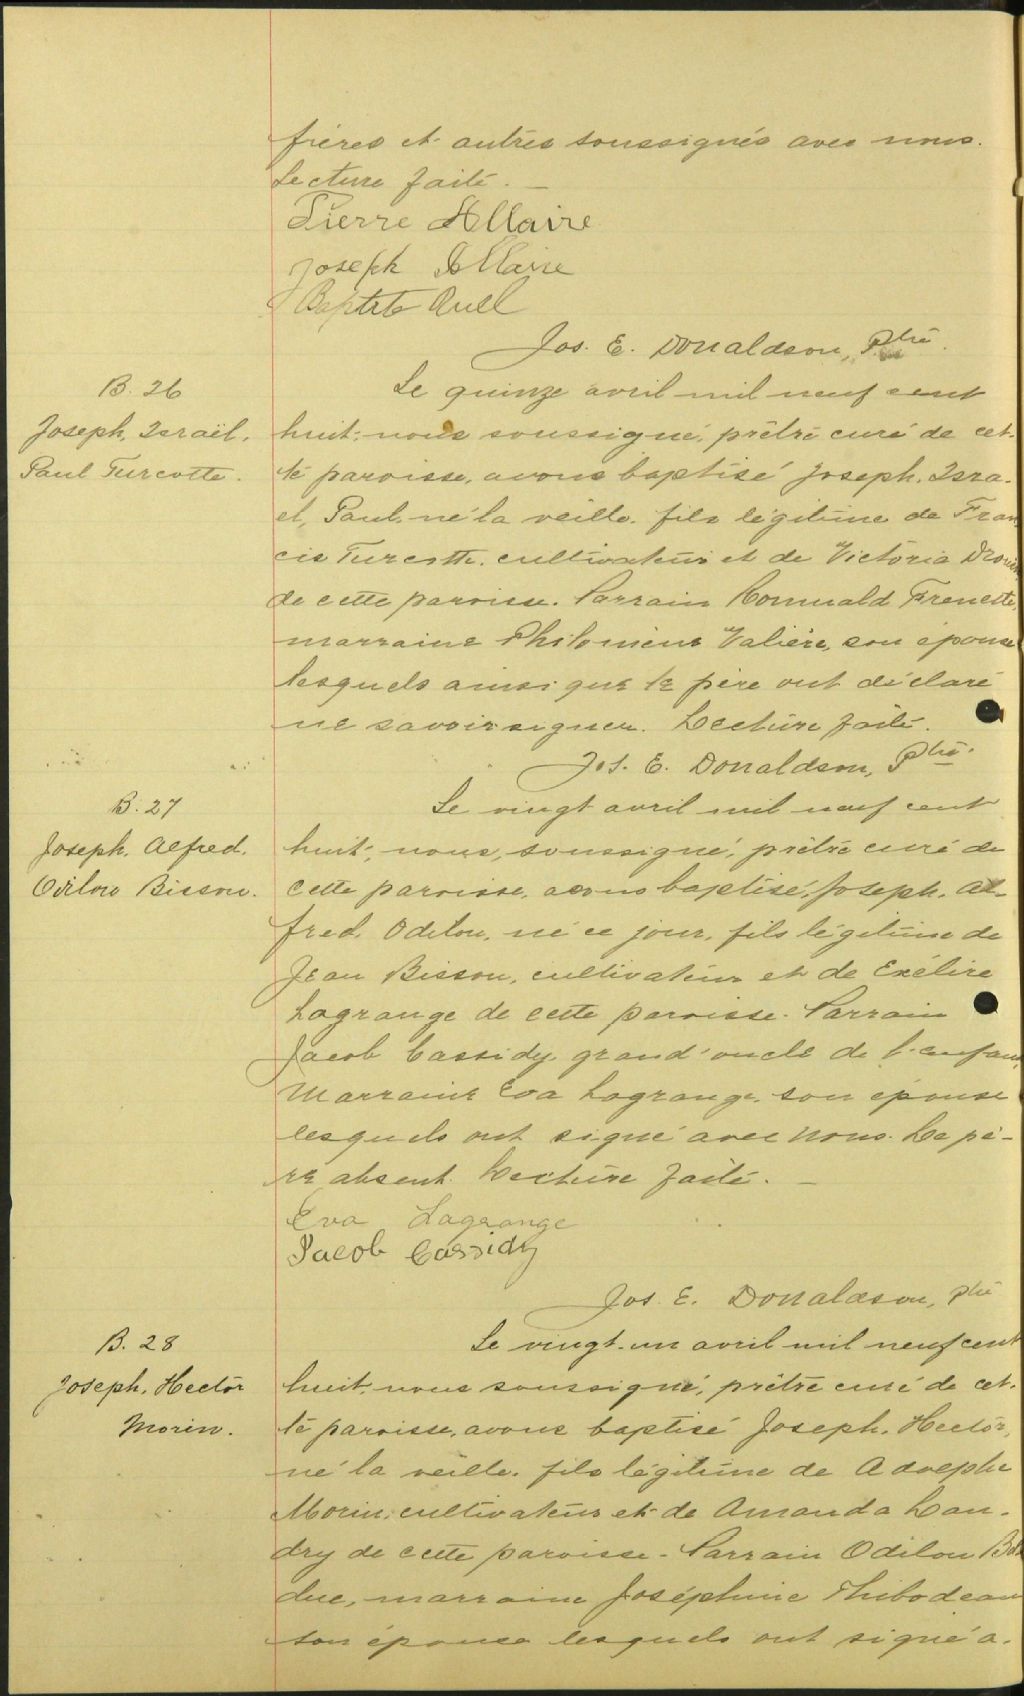 frères et autres soussignés avec nous.
Lecture faite. —
Pierre Allaire
Joseph Allaire
Baptiste Ruel
Jos. E. Donaldson, Ptre.
B. 26
Joseph, Israël,
Paul Turcotte.
Le quinze avril mil neuf cent
huit, nous soussigné, prêtre curé de cet-
te paroisse, avons baptisé Joseph, Isra-
el, Paul, né la veille, fils légitime de Fran
cis Turcotte, cultivateur et de Victoria Drouin
de cette paroisse. Parrain Romuald Frenette,
marraine Philomène Valière, son épouse
lesquels ainsi que le père ont déclaré
ne savoir signer. Lecture faite.
Jos. E. Donaldson, Ptre.
B. 27
Joseph, Alfred,
Odilon Bisson.
Le vingt avril mil neuf cent
huit, nous, soussigné, prêtre curé de
cette paroisse, avons baptisé, Joseph, Al-
fred, Odilon, né ce jour, fils légitime de
Jean Bisson, cultivateur et de Exélire
Lagrange de cette paroisse. Parrain
Jacob Cassidy, grand'oncle de l'enfant,
Marraine Eva Lagrange, son épouse
lesquels ont signé avec nous. Le pè-
re absent. Lecture faite. —
Eva Lagrange
Jacob Cassidy
Jos. E. Donaldson, Ptre
B. 28
Joseph, Hector
Morin.
Le vingt-un avril mil neuf cent
huit, nous soussigné, prêtre curé de cet-
te paroisse, avons baptisé Joseph, Hector,
né la veille, fils légitime de Adolphe
Morin, cultivateur et de Amanda Lan-
dry de cette paroisse. Parrain Odilon
duc, marraine Joséphine Thibodeau
son épouse lesquels ont signé a-